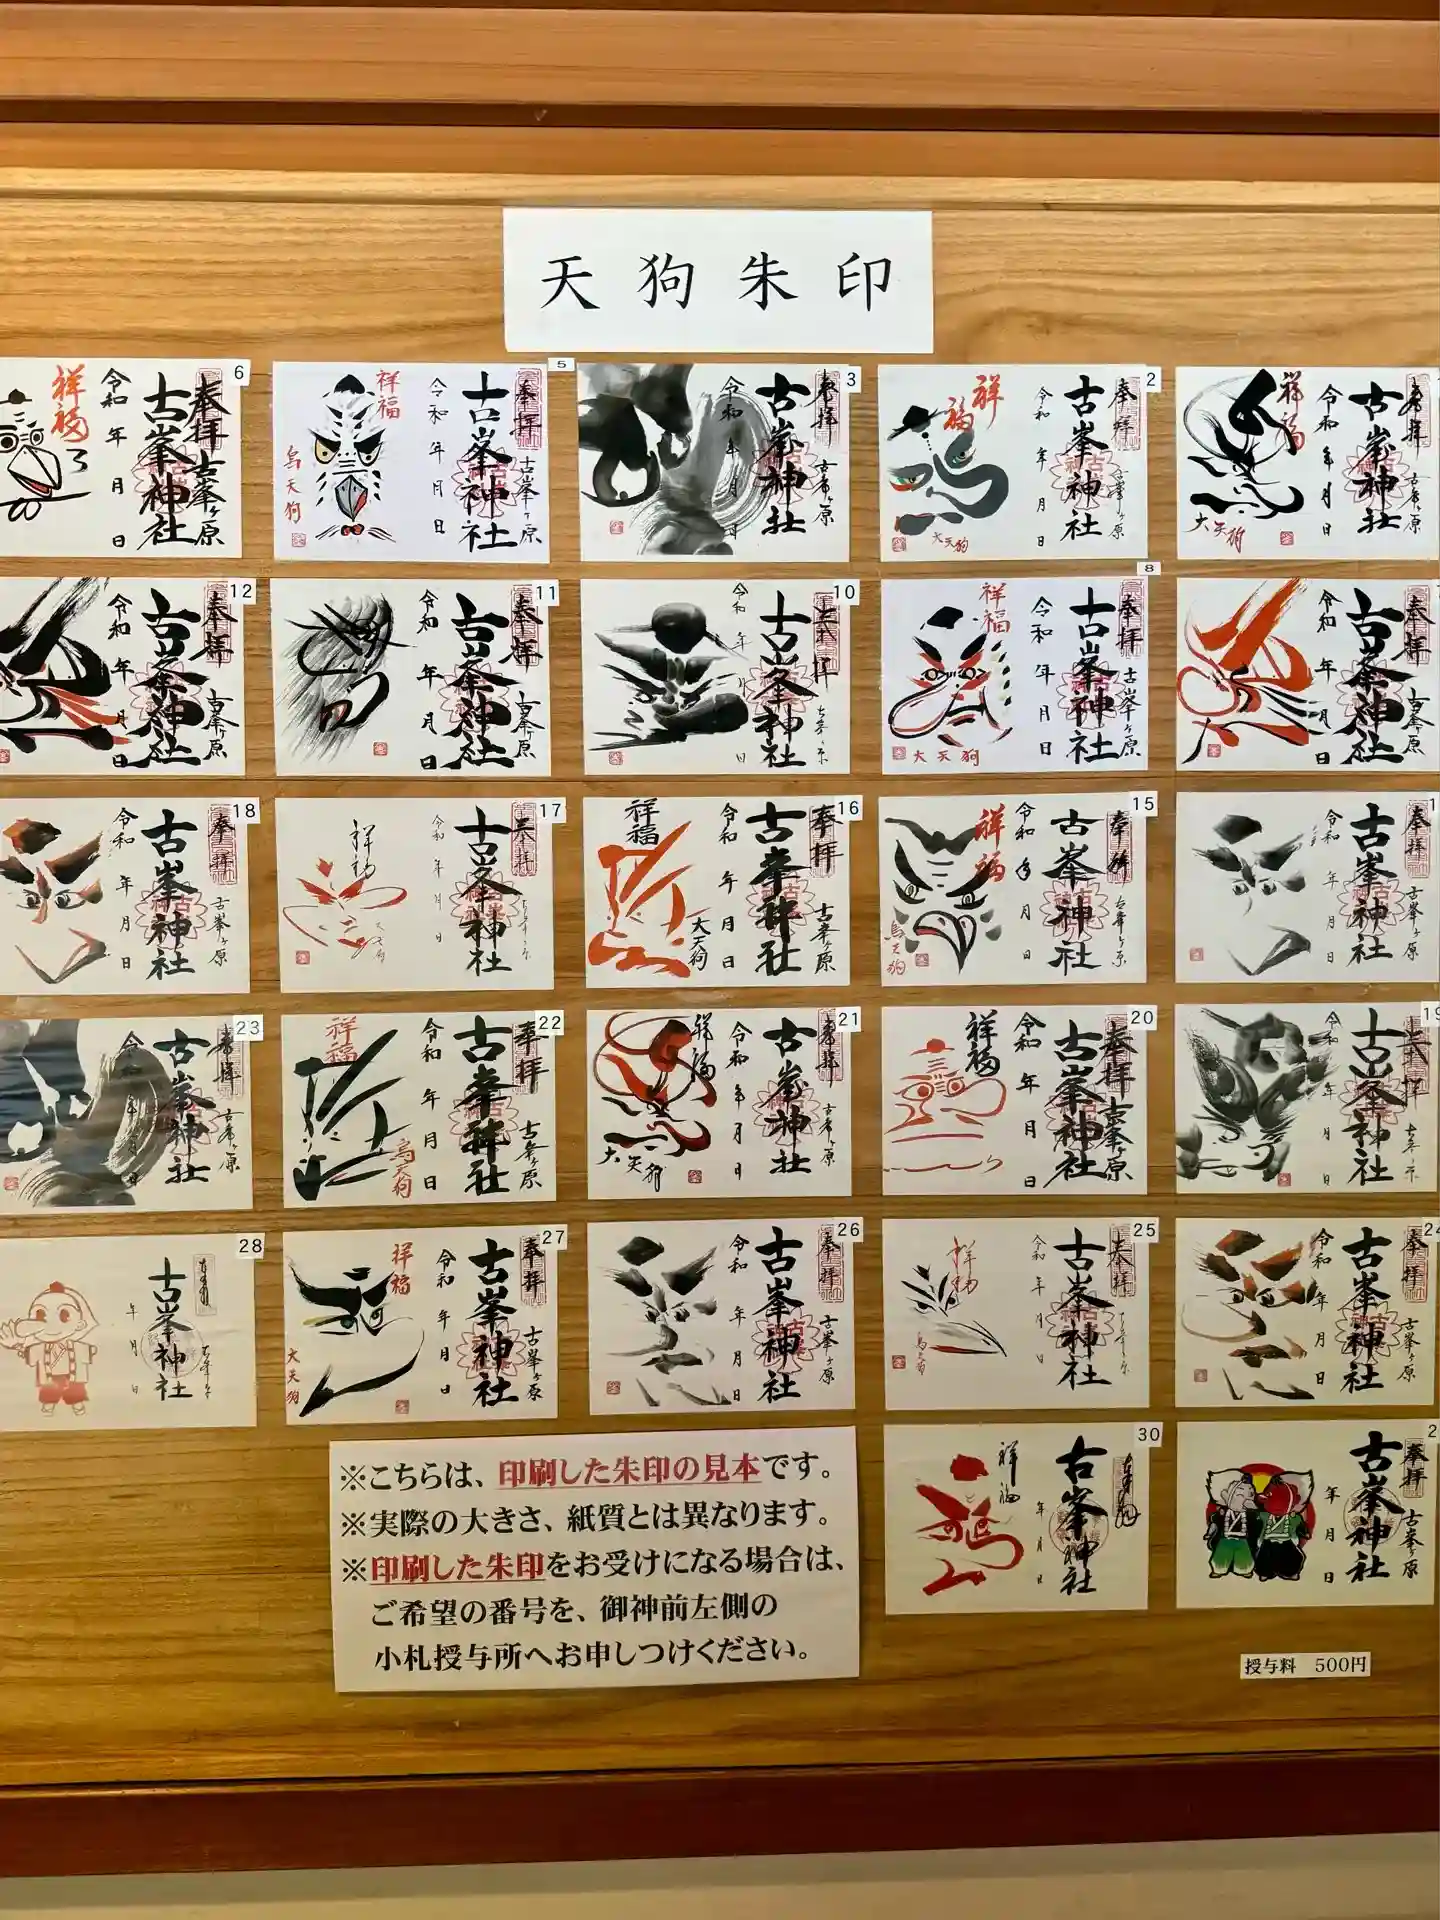 天狗朱印
6
奉拝
古峯ヶ原
古峯神社
令和 年 月 日
祥福
5
奉拝
古峯ヶ原
古峯神社
令和 年 月 日
祥福
烏天狗
3
奉拝
古峯ヶ原
古峯神社
令和 年 月 日
2
奉拝
古峯ヶ原
古峯神社
令和 年 月 日
祥福
大天狗
奉拝
古峯ヶ原
古峯神社
令和 年 月 日
祥福
大天狗
12
奉拝
古峯ヶ原
古峯神社
令和 年 月 日
11
奉拝
古峯ヶ原
古峯神社
令和 年 月 日
10
奉拝
古峯ヶ原
古峯神社
令和 年 月 日
8
奉拝
古峯ヶ原
古峯神社
令和 年 月 日
祥福
大天狗
奉拝
古峯ヶ原
古峯神社
令和 年 月 日
18
奉拝
古峯ヶ原
古峯神社
令和 年 月 日
17
奉拝
古峯ヶ原
古峯神社
令和 年 月 日
祥福
16
奉拝
古峯ヶ原
古峯神社
令和 年 月 日
祥福
大天狗
15
奉拝
古峯ヶ原
古峯神社
令和 年 月 日
祥福
烏天狗
奉拝
古峯ヶ原
古峯神社
令和 年 月 日
23
奉拝
古峯ヶ原
古峯神社
令和 年 月 日
22
奉拝
古峯ヶ原
古峯神社
令和 年 月 日
祥福
烏天狗
21
奉拝
古峯ヶ原
古峯神社
令和 年 月 日
祥福
大天狗
20
奉拝
古峯ヶ原
古峯神社
令和 年 月 日
祥福
19
奉拝
古峯ヶ原
古峯神社
令和 年 月 日
28
古峯神社
年 月 日
27
奉拝
古峯ヶ原
古峯神社
令和 年 月 日
祥福
大天狗
26
奉拝
古峯ヶ原
古峯神社
令和 年 月 日
25
奉拝
古峯神社
令和 年 月 日
祥福
24
奉拝
古峯ヶ原
古峯神社
令和 年 月 日
30
古峯神社
年 月 日
祥福
奉拝
古峯ヶ原
古峯神社
年 月 日
※こちらは、印刷した朱印の見本です。
※実際の大きさ、紙質とは異なります。
※印刷した朱印をお受けになる場合は、
ご希望の番号を、御神前左側の
小札授与所へお申しつけください。
授与料 500円